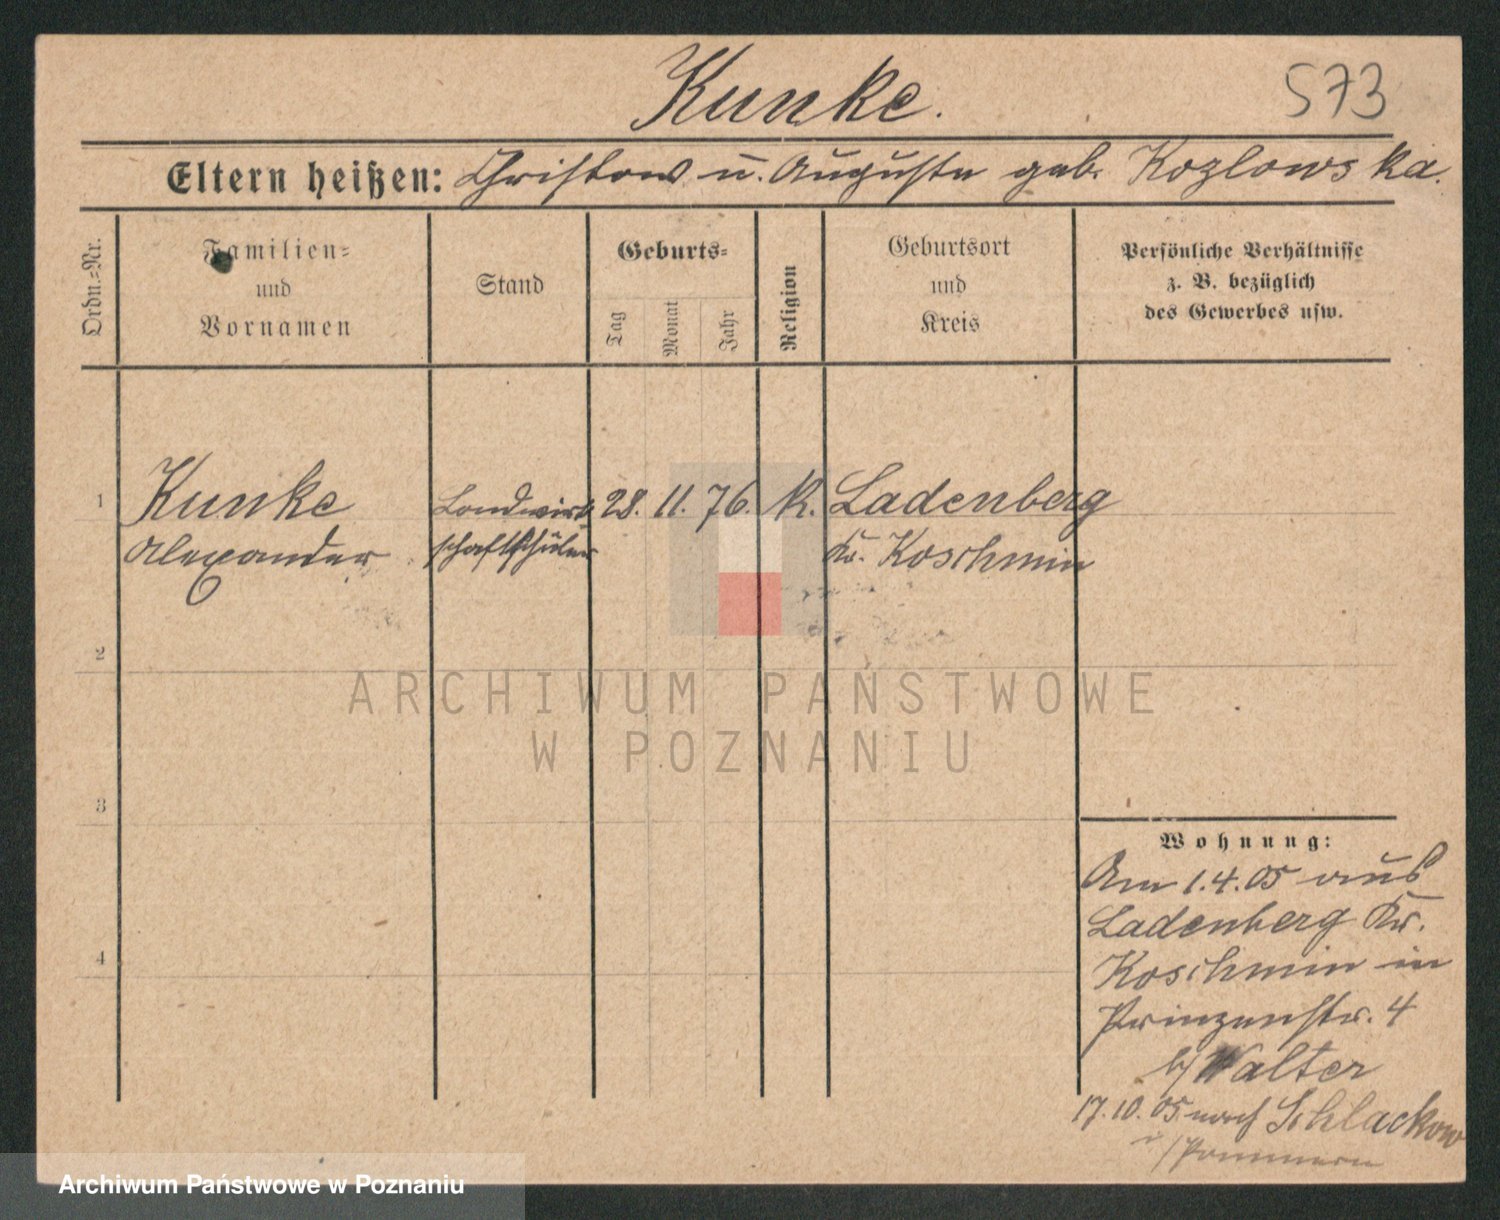 Kunke.
573
Eltern heißen: Christow u. Auguste geb. Kozlowska.
Ordn.=Nr.
Familien=
und
Vornamen
Stand
Geburts=
Tag
Monat
Jahr
Religion
Geburtsort
und
Kreis
Persönliche Verhältnisse
z. B. bezüglich
des Gewerbes usw.
1 Kunke Landwirt 28. 11. 76. K. Ladenberg
Alexander schaftsschüler Kr. Koschmin
2
ARCHIWUM PAŃSTWOWE
W POZNANIU
3
Wohnung:
Am 1.4.05 aus
Ladenberg Kr.
4
Koschmin in
Prinzenstr. 4
b/ Walter
17.10.05 nach Schlackow
i/Pommern
Archiwum Państwowe w Poznaniu